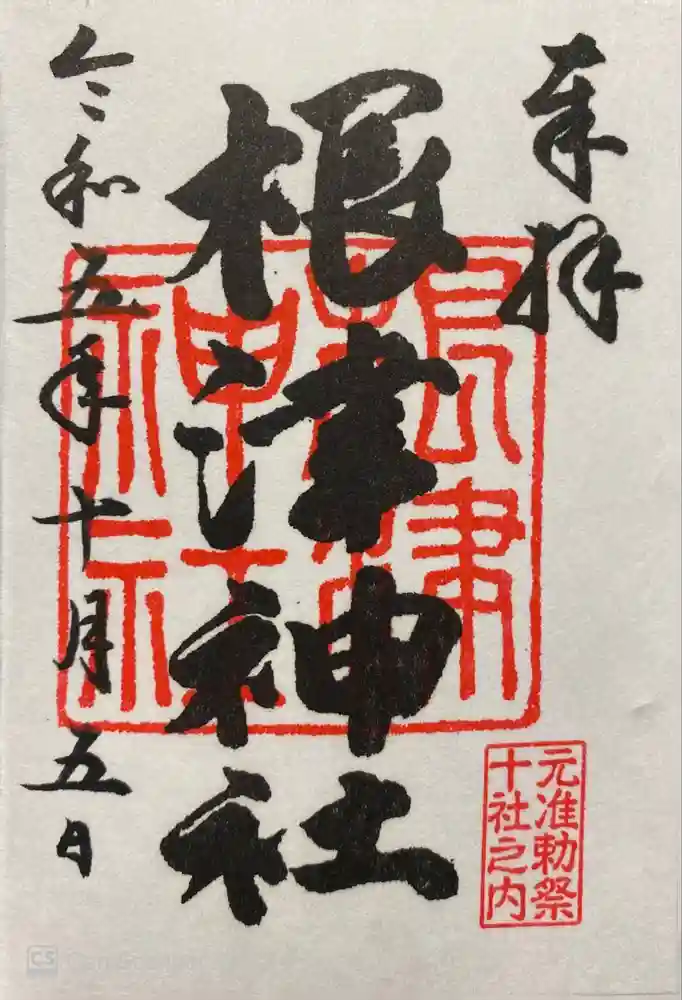 奉拝
根津神社
根津神社
令和五年十月五日
元准勅祭
十社之内
CS CamScanner